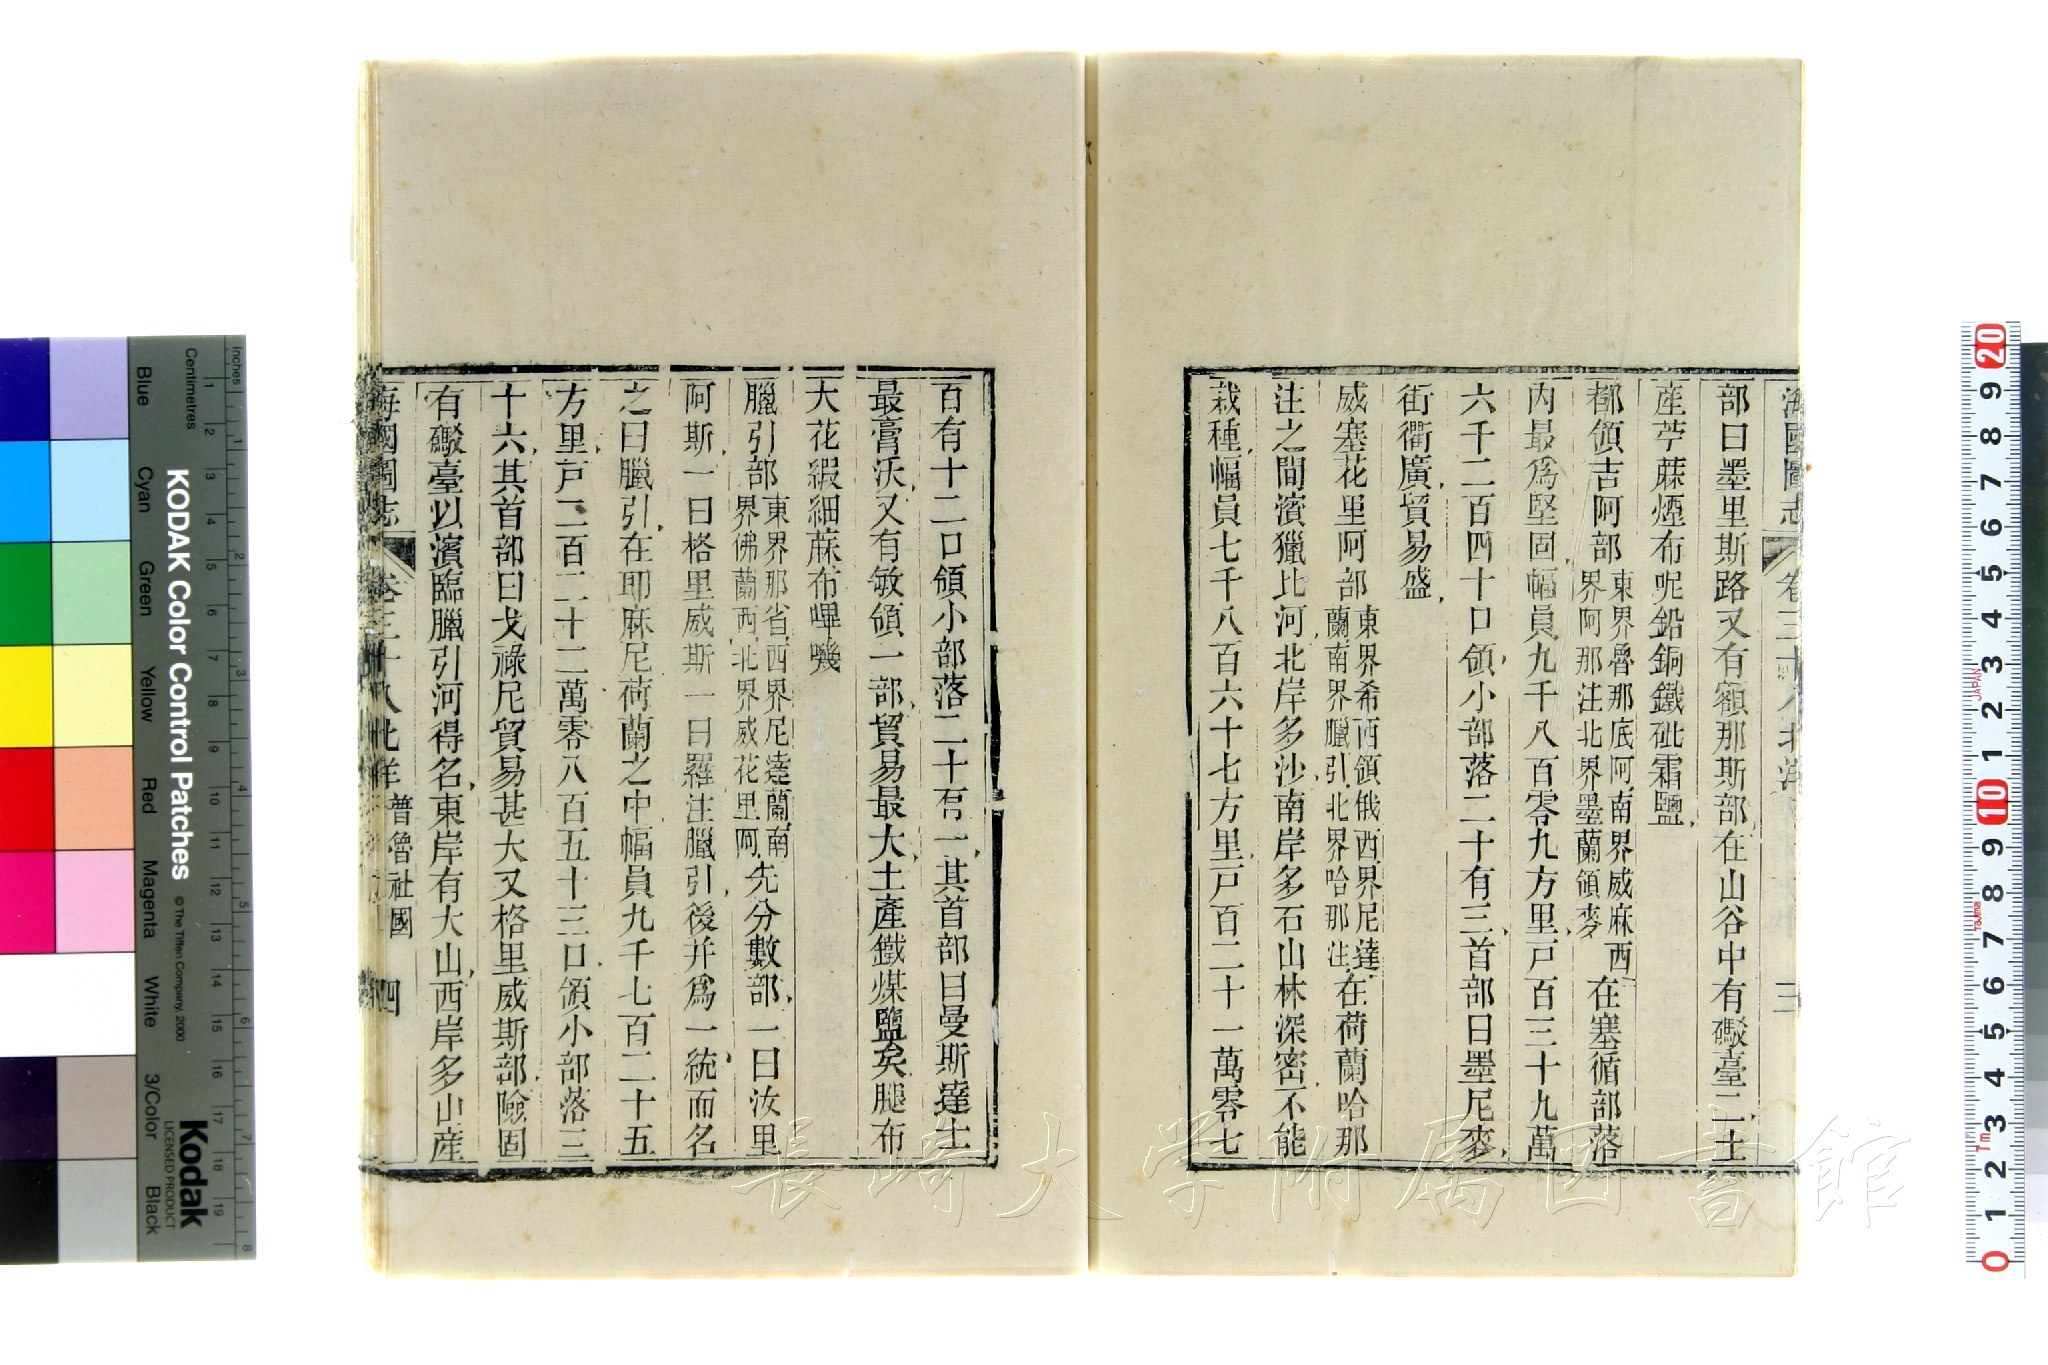 海國圖志 卷三十八 北洋 三
部曰墨里斯路又有額那斯部在山谷中有礮臺二土
産苧蔴煙布呢鉛銅鐵砒霜鹽
都領吉阿部東界魯那底阿南界威麻西界阿那注北界墨蘭領麥在塞循部落
内最爲堅固幅員九千八百零九方里戸百三十九萬
六千二百四十口領小部落二十有三首部曰墨尼麥
街衢廣貿易盛
威塞花里阿部東界希西領俄西界尼達蘭南界臘引北界哈那注在荷蘭哈那
注之間濱獵比河北岸多沙南岸多石山林深密不能
栽種幅員七千八百六十七方里戸百二十一萬零七
百有十二口領小部落二十有一其首部曰曼斯達土
最膏沃又有敏領一部貿易最大土產鐵煤鹽矣腿布
大花緞細蔴布嗶嘰
臘引部東界那省西界尼達蘭南界佛蘭西北界威花里阿先分數部一曰汝里
阿斯一曰格里威斯一曰羅注臘引後并爲一統而名
之曰臘引在耶麻尼荷蘭之中幅員九千七百二十五
方里戸二百二十二萬零八百五十三口領小部落三
十六其首部曰戈祿尼貿易甚大又格里威斯部險固
有礮臺以濱臨臘引河得名東岸有大山西岸多山産
海國圖志 卷三十八 北洋 普魯社國 四
KODAK Color Control Patches
© The Tiffen Company, 2000
Kodak
LICENSED PRODUCT
Inches
Centimetres
Blue Cyan Green Yellow Red Magenta White 3/Color Black
長崎大学附属図書館
JAPAN